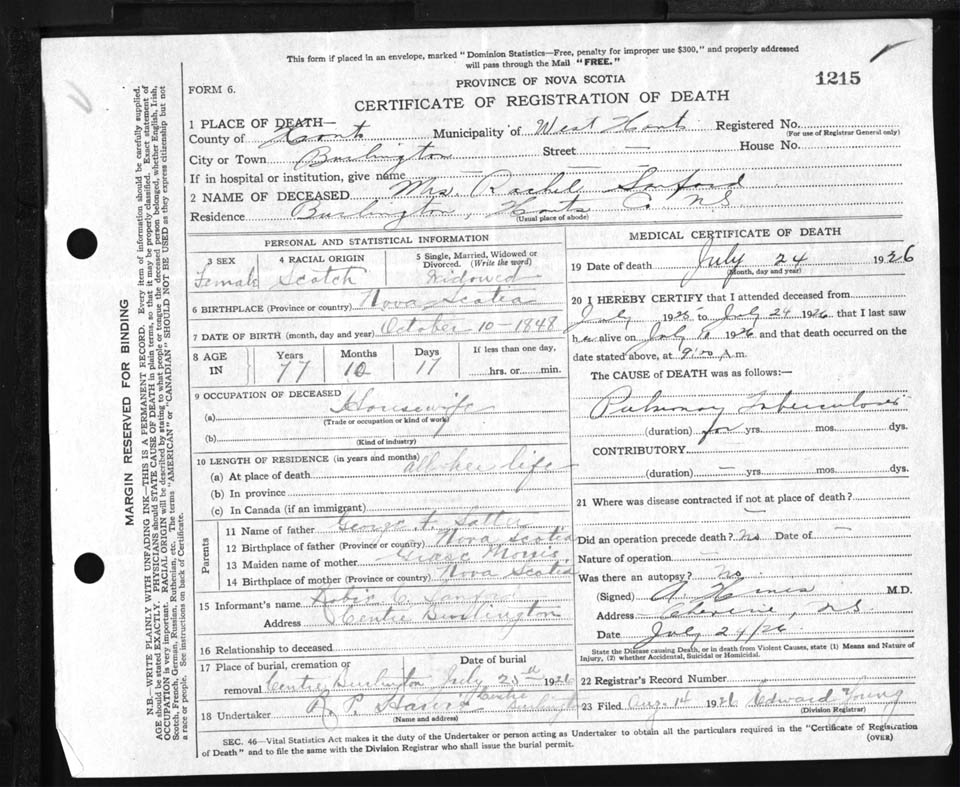 This form if placed in an envelope, marked "Dominion Statistics—Free, penalty for improper use $300," and properly addressed
will pass through the Mail "FREE."
PROVINCE OF NOVA SCOTIA
1215
FORM 6.
CERTIFICATE OF REGISTRATION OF DEATH
1 PLACE OF DEATH—
County of Hants Municipality of West Hants Registered No.
(For use of Registrar General only)
City or Town Burlington Street — House No.
If in hospital or institution, give name — —
2 NAME OF DECEASED Mrs. Rachel Sanford
Residence Burlington, Hants Co. N.S.
(Usual place of abode)
PERSONAL AND STATISTICAL INFORMATION
3 SEX 4 RACIAL ORIGIN 5 Single, Married, Widowed or Divorced. (Write the word)
Female Scotch Widowed
6 BIRTHPLACE (Province or country) Nova Scotia
7 DATE OF BIRTH (month, day and year) October 10-1848
8 AGE IN Years Months Days If less than one day,
77 10 17 hrs. or min.
9 OCCUPATION OF DECEASED
(a) Housewife
(Trade or occupation or kind of work)
(b)
(Kind of industry)
10 LENGTH OF RESIDENCE (in years and months)
(a) At place of death all her life
(b) In province
(c) In Canada (if an immigrant)
Parents
11 Name of father George
12 Birthplace of father (Province or country) Nova Scotia
13 Maiden name of mother Morris
14 Birthplace of mother (Province or country) Nova Scotia
15 Informant's name C. Sanford
Address Centre Burlington
16 Relationship to deceased
17 Place of burial, cremation or removal Date of burial
Centre Burlington July 25th 1926
18 Undertaker R. P. Centre Burlington
(Name and address)
MEDICAL CERTIFICATE OF DEATH
19 Date of death July 24 1926
(Month, day and year)
20 I HEREBY CERTIFY that I attended deceased from
July 1925 to July 24 1926 that I last saw
her alive on July 1926 and that death occurred on
date stated above, at 9:00 A.m.
The CAUSE of DEATH was as follows:—
Pulmonary Tuberculosis
(duration) yrs. mos. dys.
CONTRIBUTORY
(duration) — yrs. mos. dys.
21 Where was disease contracted if not at place of death?
—
Did an operation precede death? No Date of
Nature of operation —
Was there an autopsy? No
(Signed) A M.D.
Address Cheverie, N.S.
Date July 24/26
State the Disease causing Death, or in death from Violent Causes, state (1) Means and Nature of
Injury, (2) whether Accidental, Suicidal or Homicidal.
22 Registrar's Record Number
23 Filed Aug. 14 1926 Edward Young
(Division Registrar)
SEC. 46—Vital Statistics Act makes it the duty of the Undertaker or person acting as Undertaker to obtain all the particulars required in the "Certificate of Registration
of Death" and to file the same with the Division Registrar who shall issue the burial permit.
(OVER)
MARGIN RESERVED FOR BINDING
N.B.—WRITE PLAINLY WITH UNFADING INK—THIS IS A PERMANENT RECORD. Every item of information should be carefully supplied.
AGE should be stated EXACTLY. PHYSICIANS should STATE CAUSE OF DEATH in plain terms, so that it may be properly classified. Exact statement of
OCCUPATION is very important. RACIAL ORIGIN will be described by stating to what people or tongue the deceased person belonged, whether English, Irish,
Scotch, French, German, Russian, Ruthenian, etc. The terms "AMERICAN" or "CANADIAN" SHOULD NOT BE USED as they express citizenship but not
a race or people. See instructions on back of Certificate.